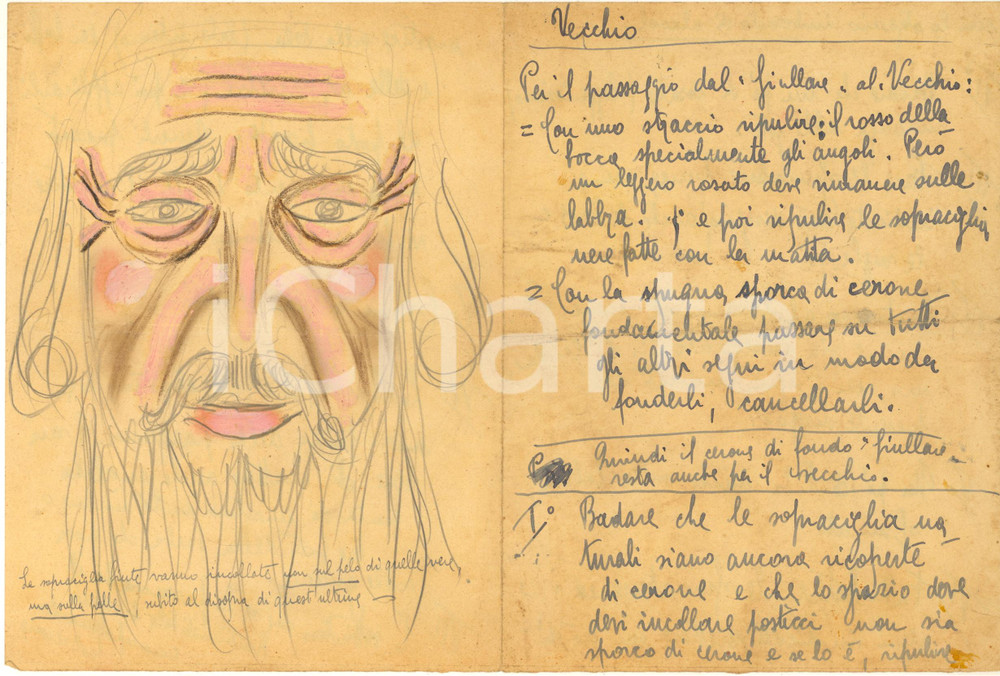 Vecchio
Per il passaggio dal "giullare" al Vecchio:
= Con uno straccio ripulire: il rosso della
bocca specialmente gli angoli. Però
un leggero rosato deve rimanere sulle
labbra. e poi ripulire le sopraciglia
nere fatte con la matita.
= Con la spugna sporca di cerone
fondamentale passare su tutti
gli altri segni in modo da
fonderli, cancellarli.
Quindi il cerone di fondo "giullare"
resta anche per il vecchio.
I° Badare che le sopraciglia na
turali siano ancora ricoperte
di cerone e che lo spazio dove
devi incollare posticci non sia
sporco di cerone e se lo è, ripulire
Le sopraciglia finte vanno incollate non sul pelo di quelle vere,
ma sulla pelle, subito al disopra di quest'ultime
iCharta